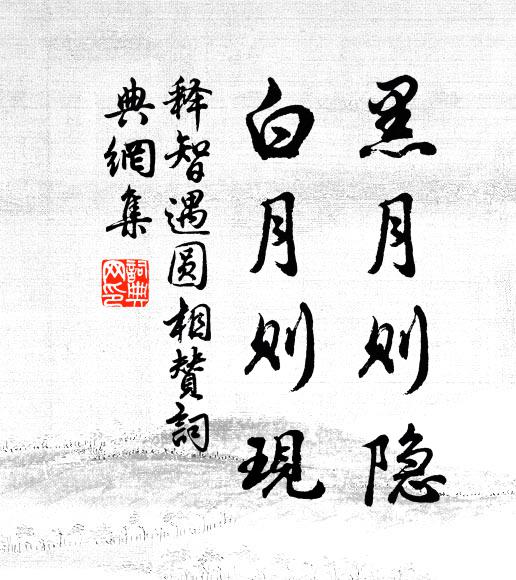 黑月则隐
白月则现
释智遇圆相赞词
典網集
詞典网印